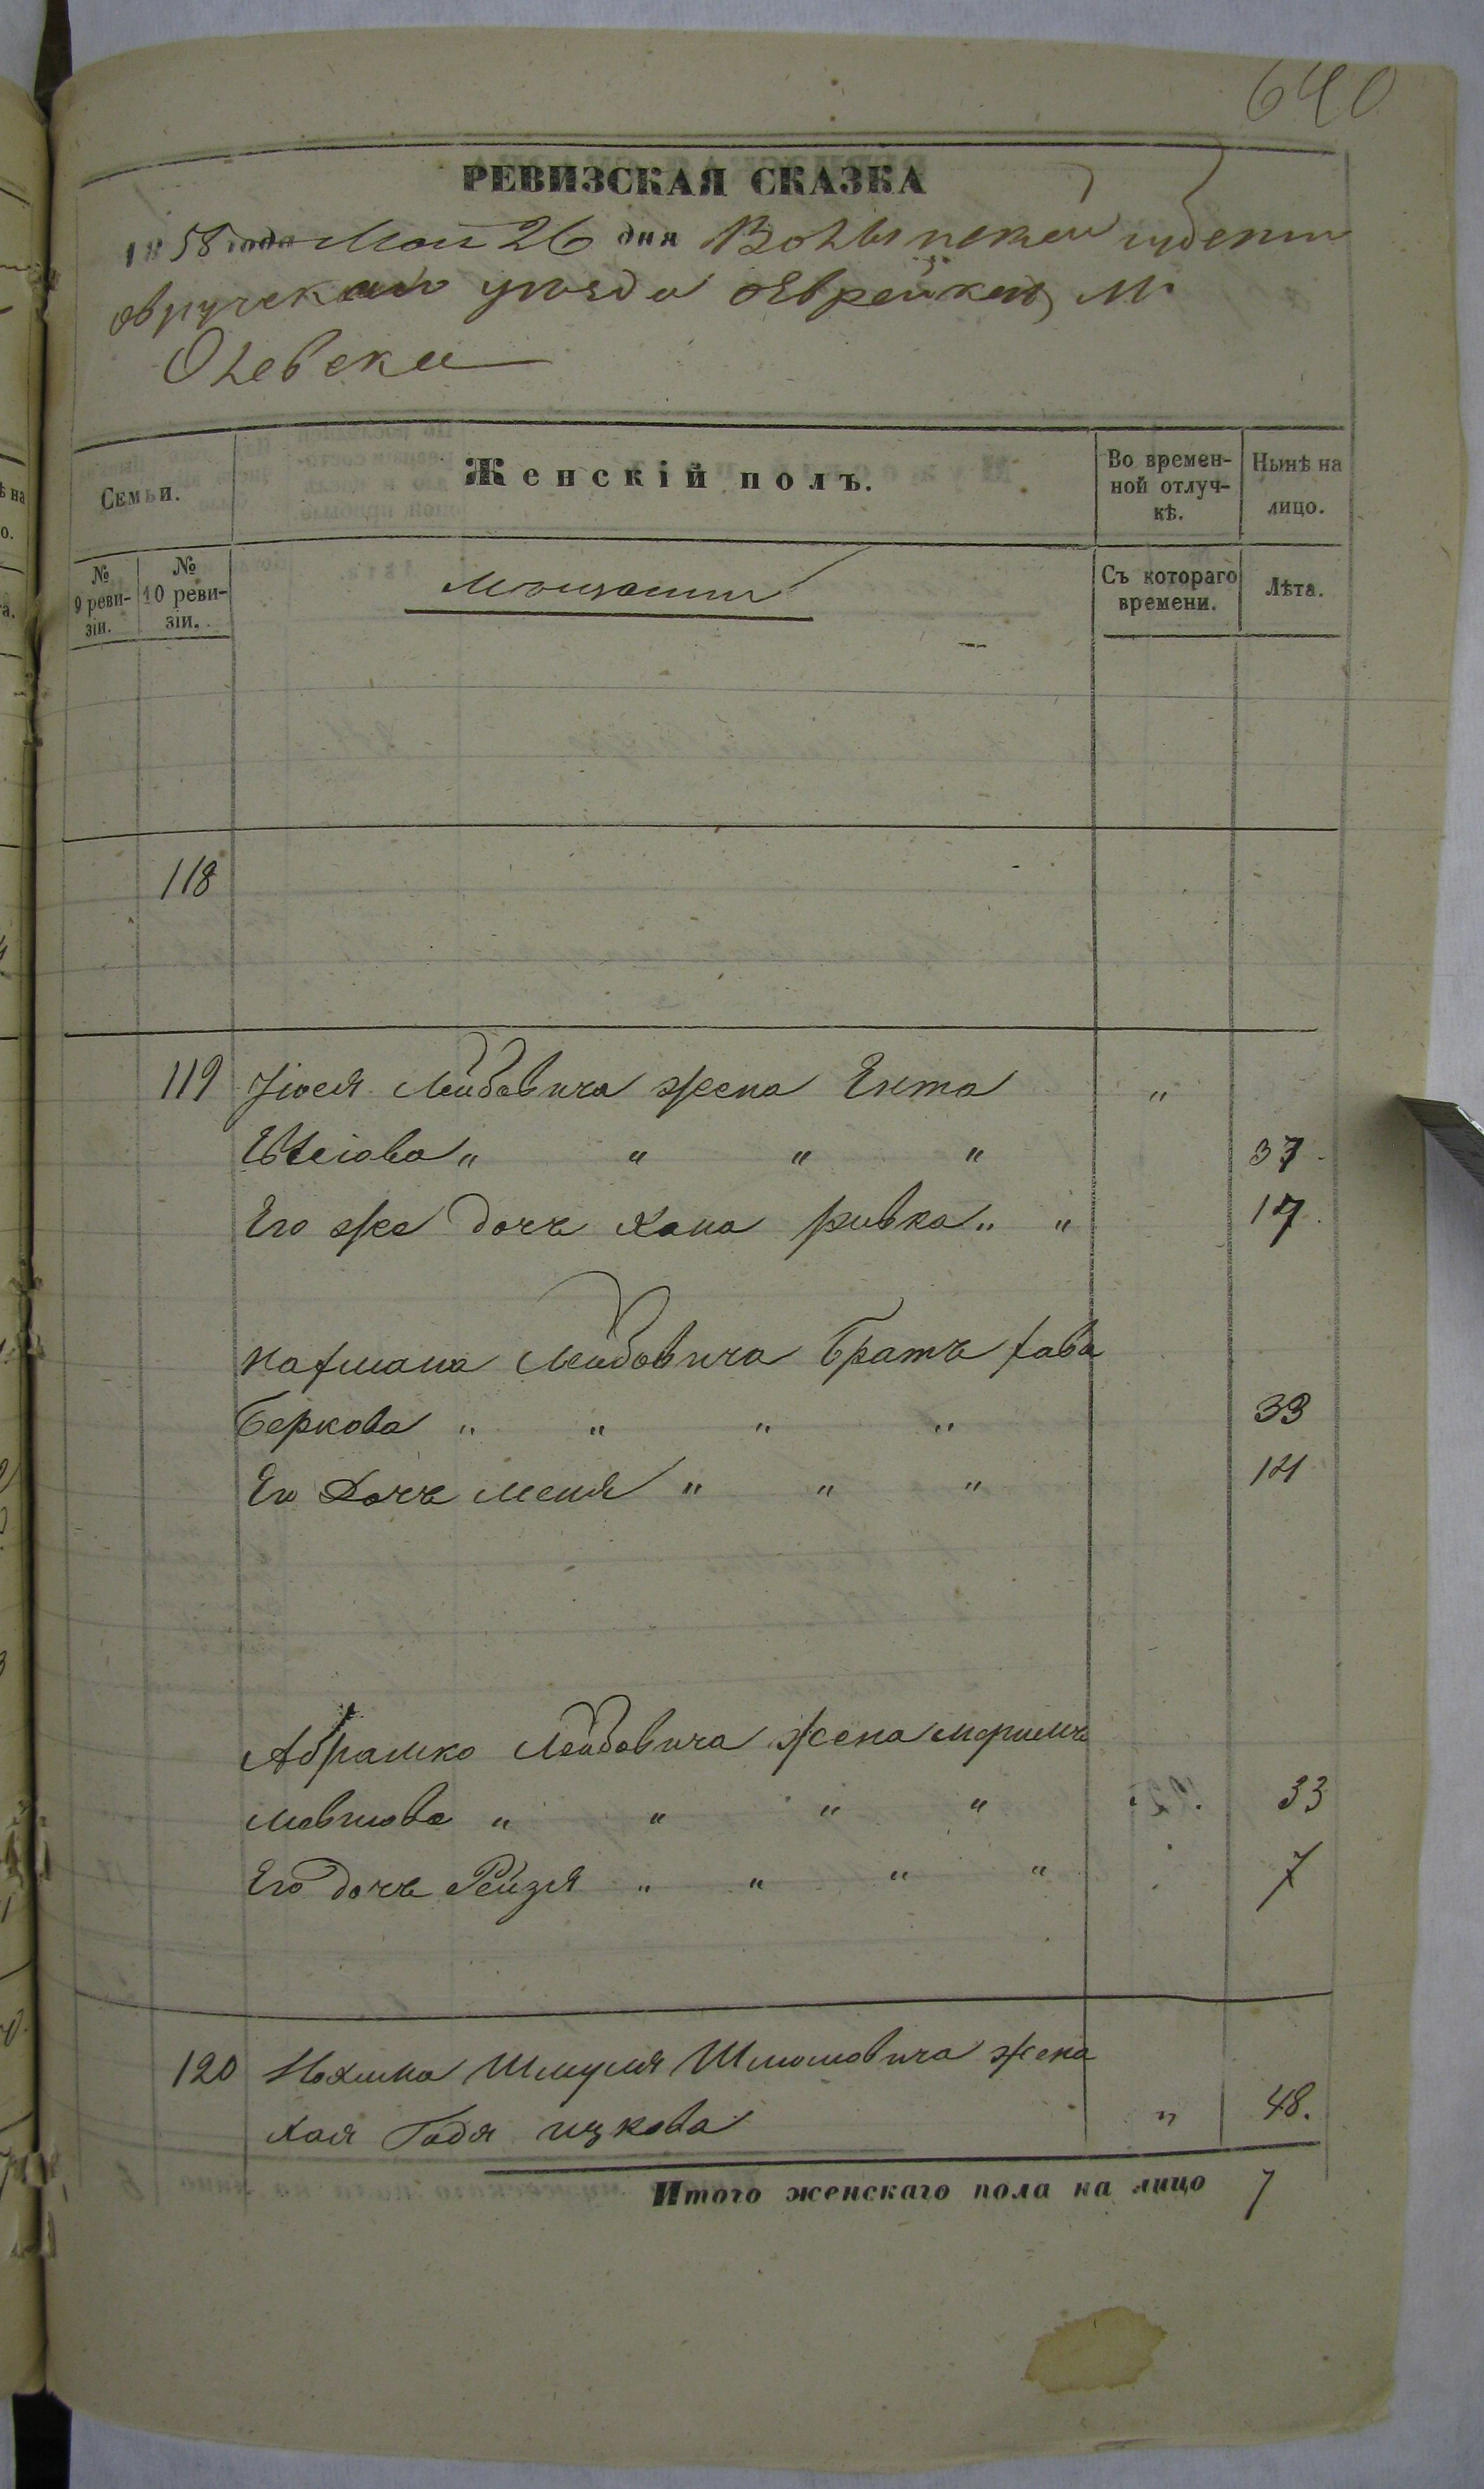 640
РЕВИЗСКАЯ СКАЗКА
1858 года Мая 26 дня Волынской губерни
овручскаго уѣзда Еврейкой М
Олевска
Семьи.
Женскій полъ.
Во времен-
ной отлуч-
кѣ.
Нынѣ на
лицо.
№
9 реви-
зіи.
№
10 реви-
зіи.
Мѣщанин
Съ котораго
времени.
Лѣта.
118
119 Лейбовича жена Ента
" " " " 37
Его же дочь Хана ривка " " 17
нахмана Лейбовича братъ хава
Беркова " " " " 33
Его Дочь меня " " " 14
Абрамко Лейбовича жена миримъ
мовшова " " " " 33
Его дочь Рейзя " " " " 7
120 Шмуля Шмомовича жена
хая Годя ицкова " 48.
Итого женскаго пола на лицо 7